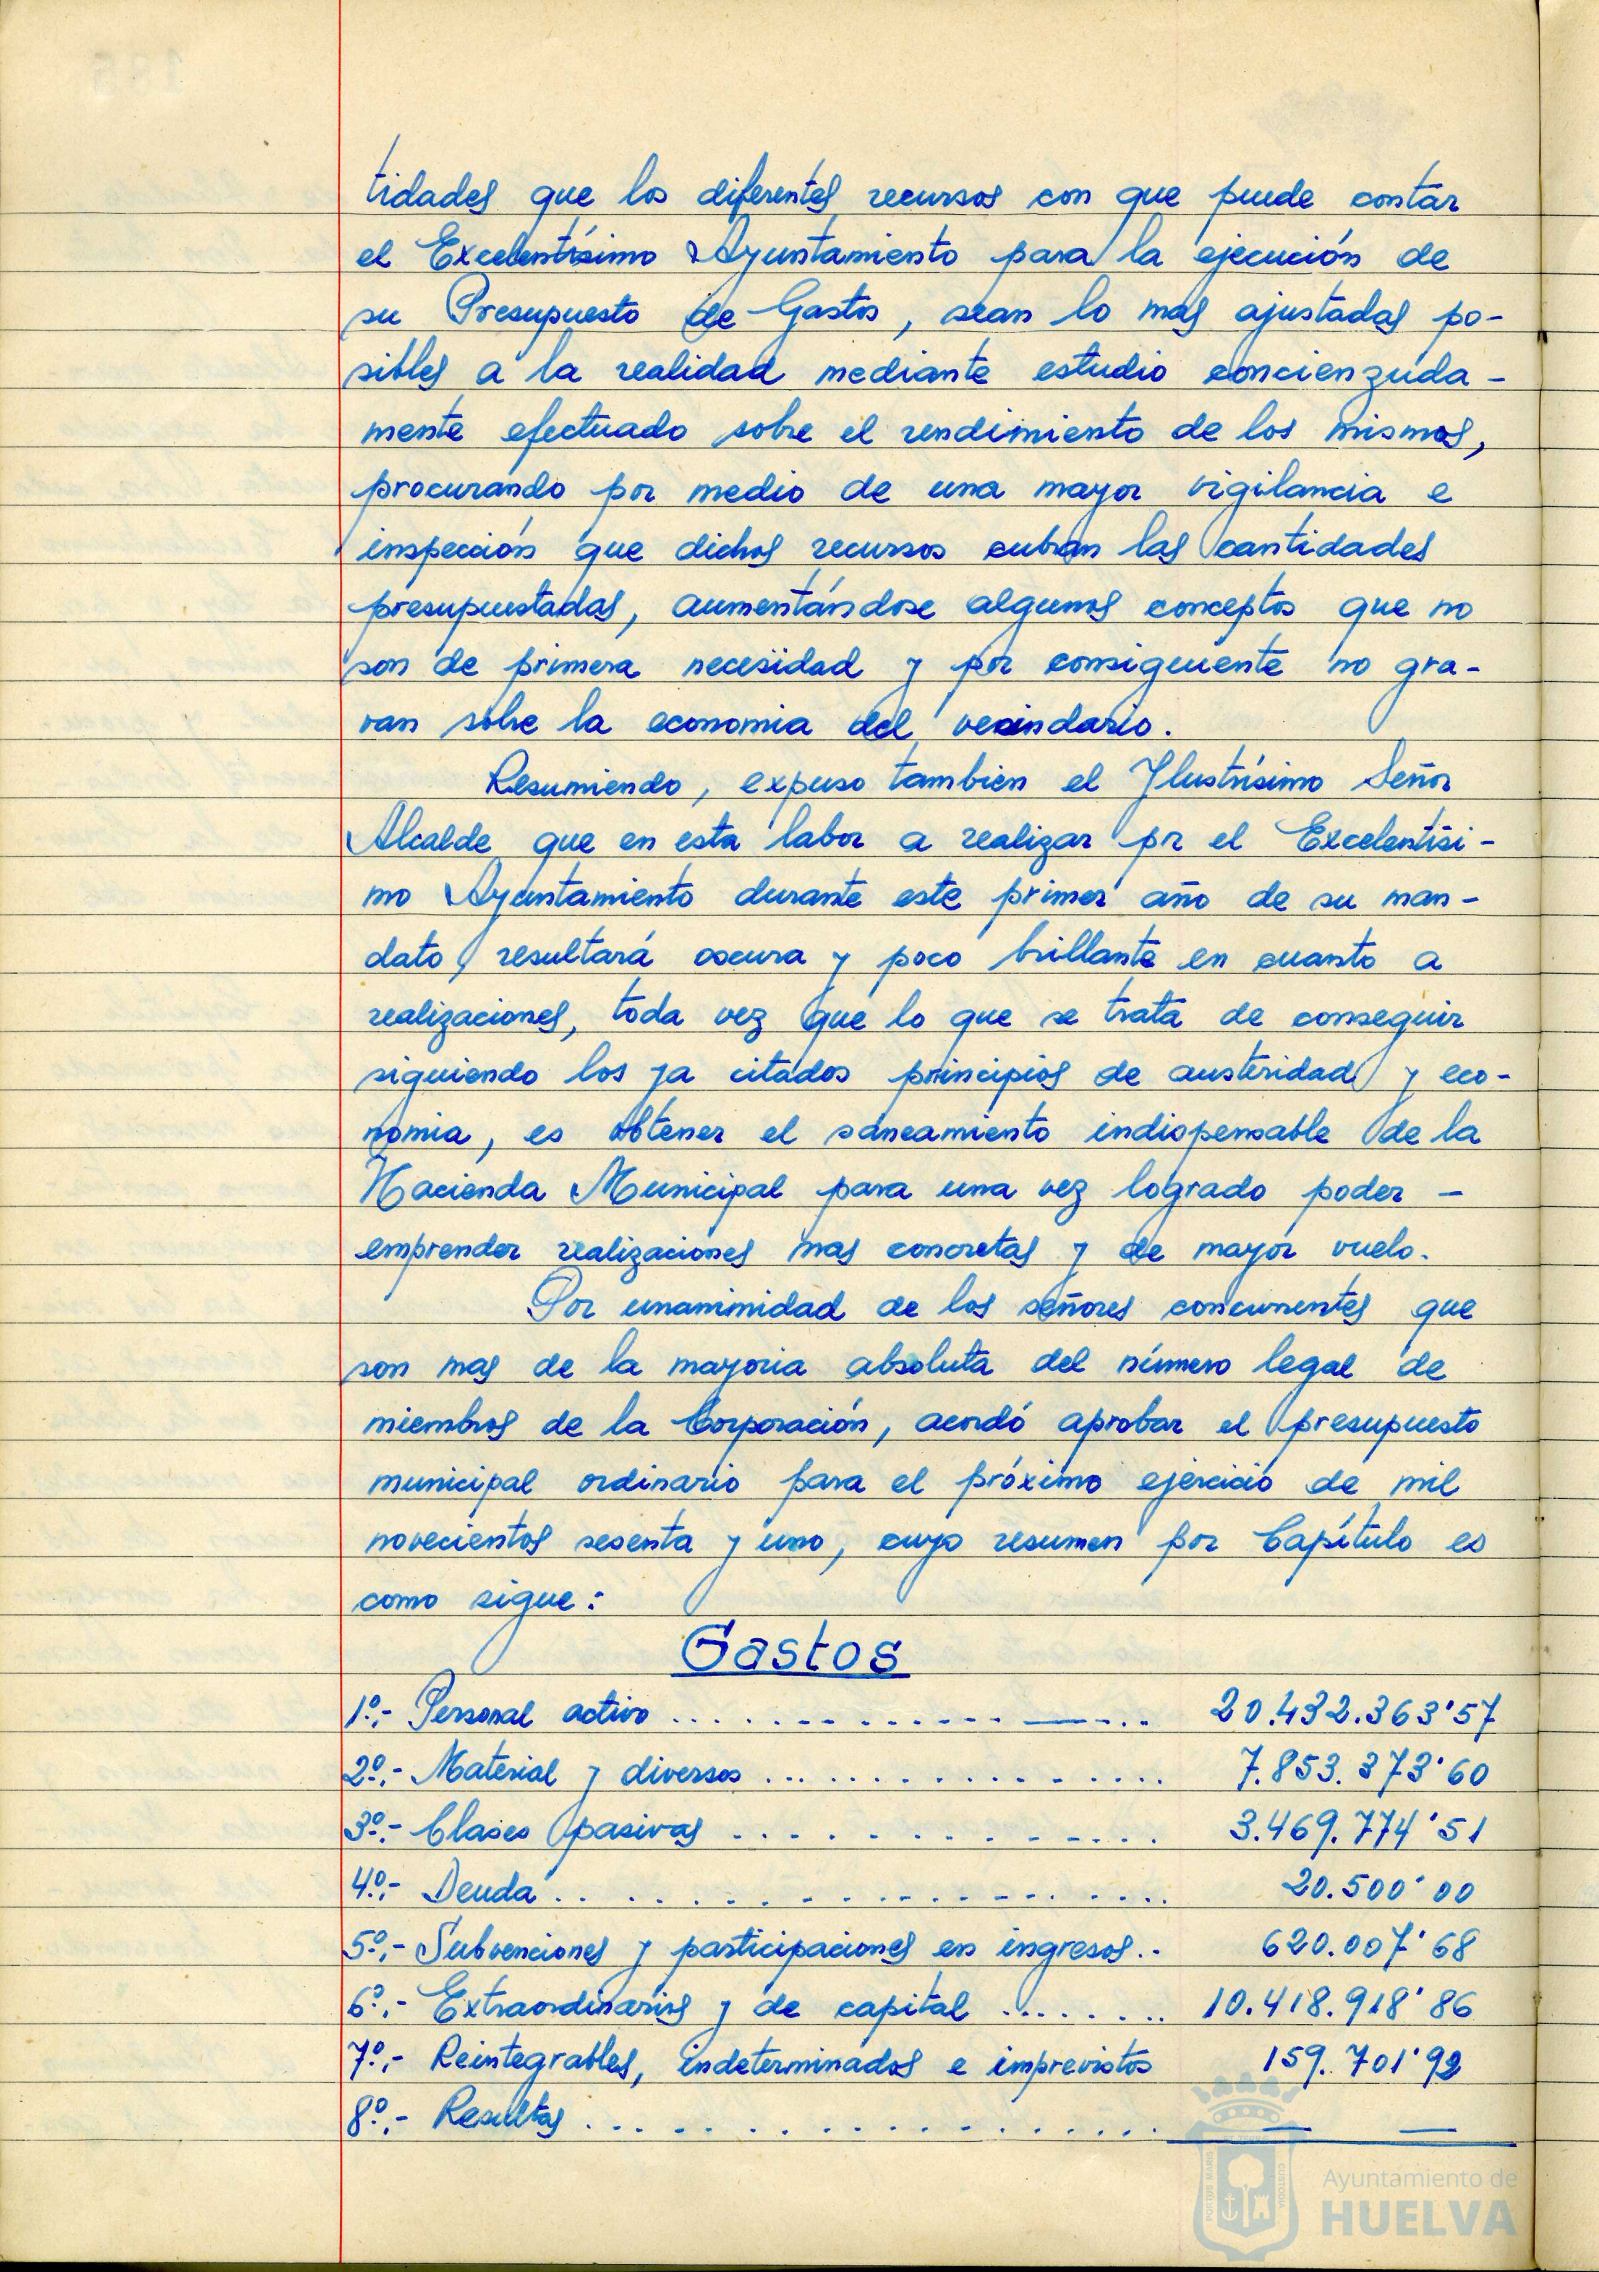 tidades que los diferentes recursos con que puede contar
el Excelentísimo Ayuntamiento para la ejecución de
su Presupuesto de Gastos, sean lo mas ajustadas po-
sibles a la realidad mediante estudio concienzuda-
mente efectuado sobre el rendimiento de los mismos,
procurando por medio de una mayor vigilancia e
inspección que dichos recursos cubran las cantidades
presupuestadas, aumentándose algunos conceptos que no
son de primera necesidad y por consiguiente no gra-
van sobre la economia del vecindario.
Resumiendo, expuso tambien el Ilustrísimo Señor
Alcalde que en esta labor a realizar pr el Excelentísi-
mo Ayuntamiento durante este primer año de su man-
dato, resultará oscura y poco brillante en cuanto a
realizaciones, toda vez que lo que se trata de conseguir
siguiendo los ya citados principios de austeridad y eco-
nomia, es obtener el saneamiento indispensable de la
Hacienda Municipal para una vez logrado poder -
emprender realizaciones mas concretas y de mayor vuelo.
Por unanimidad de los señores concurrentes que
son mas de la mayoria absoluta del número legal de
miembros de la Corporación, acordó aprobar el presupuesto
municipal ordinario para el próximo ejercicio de mil
novecientos sesenta y uno, cuyo resumen por Capítulo es
como sigue:
Gastos
1º.- Personal activo .................... 20.432.363'57
2º.- Material y diversos ................ 7.853.373'60
3º.- Clases pasivas ................ 3.469.774'51
4º.- Deuda ........................ 20.500'00
5º.- Subvenciones y participaciones en ingresos.. 620.007'68
6º.- Extraordinarios y de capital ........ 10.418.918'86
7º.- Reintegrables, indeterminados e imprevistos 159.701'92
8º.- Resultas ...................... — —
PORTUS MARIS
CUSTODIA
Ayuntamiento de
HUELVA